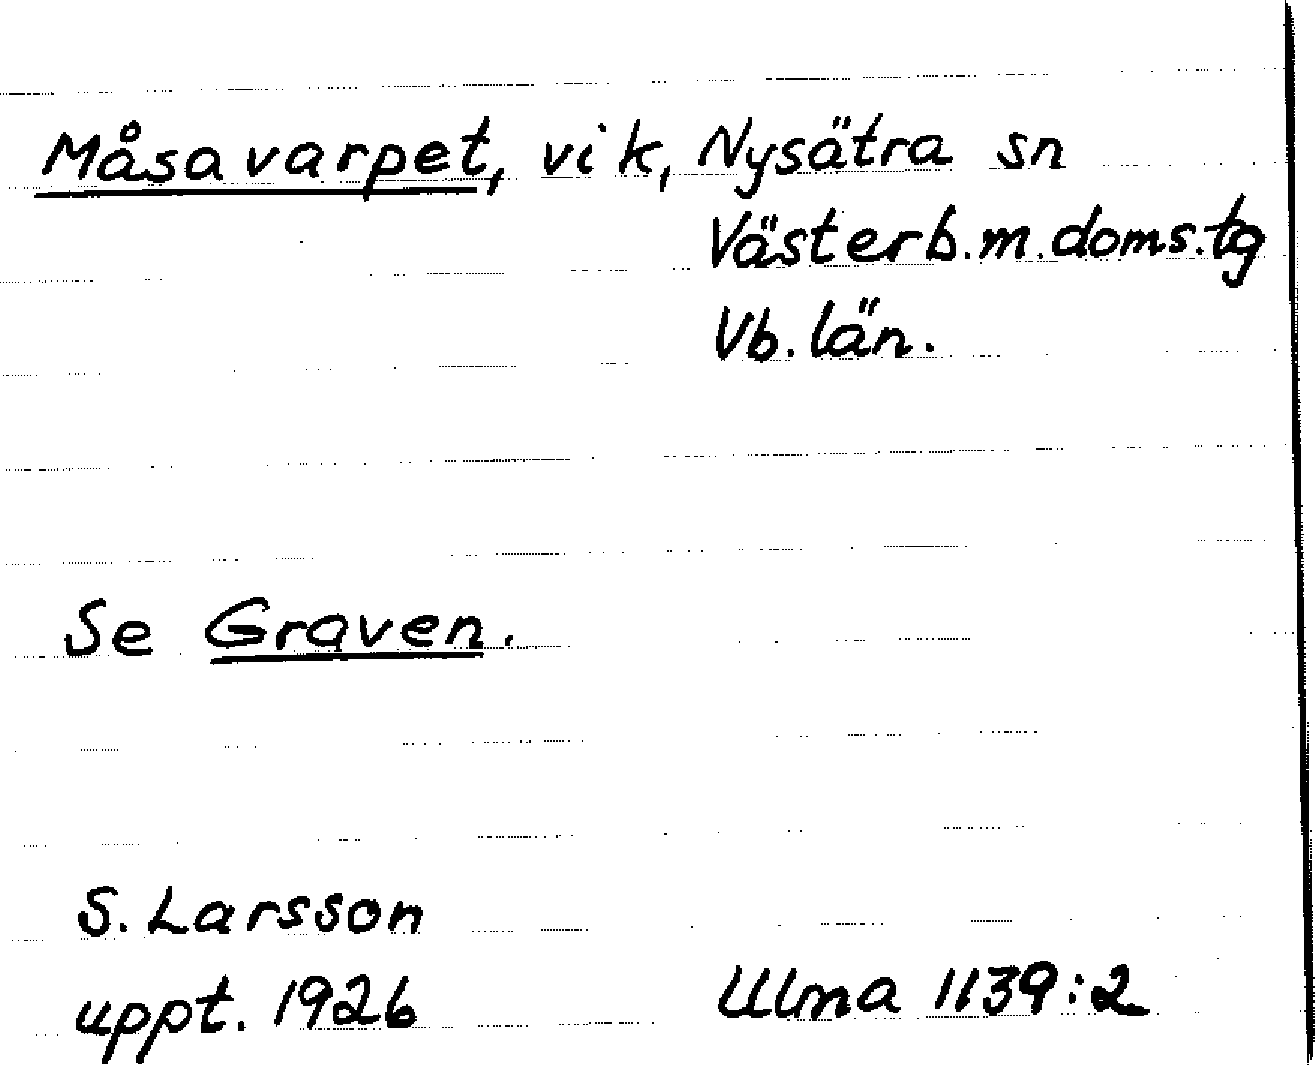 Måsavarpet, vik, Nysätra sn
Västerb.m.doms.tg
Vb. län.
Se Graven.
S. Larsson
uppt. 1926
Ulma 1139:2